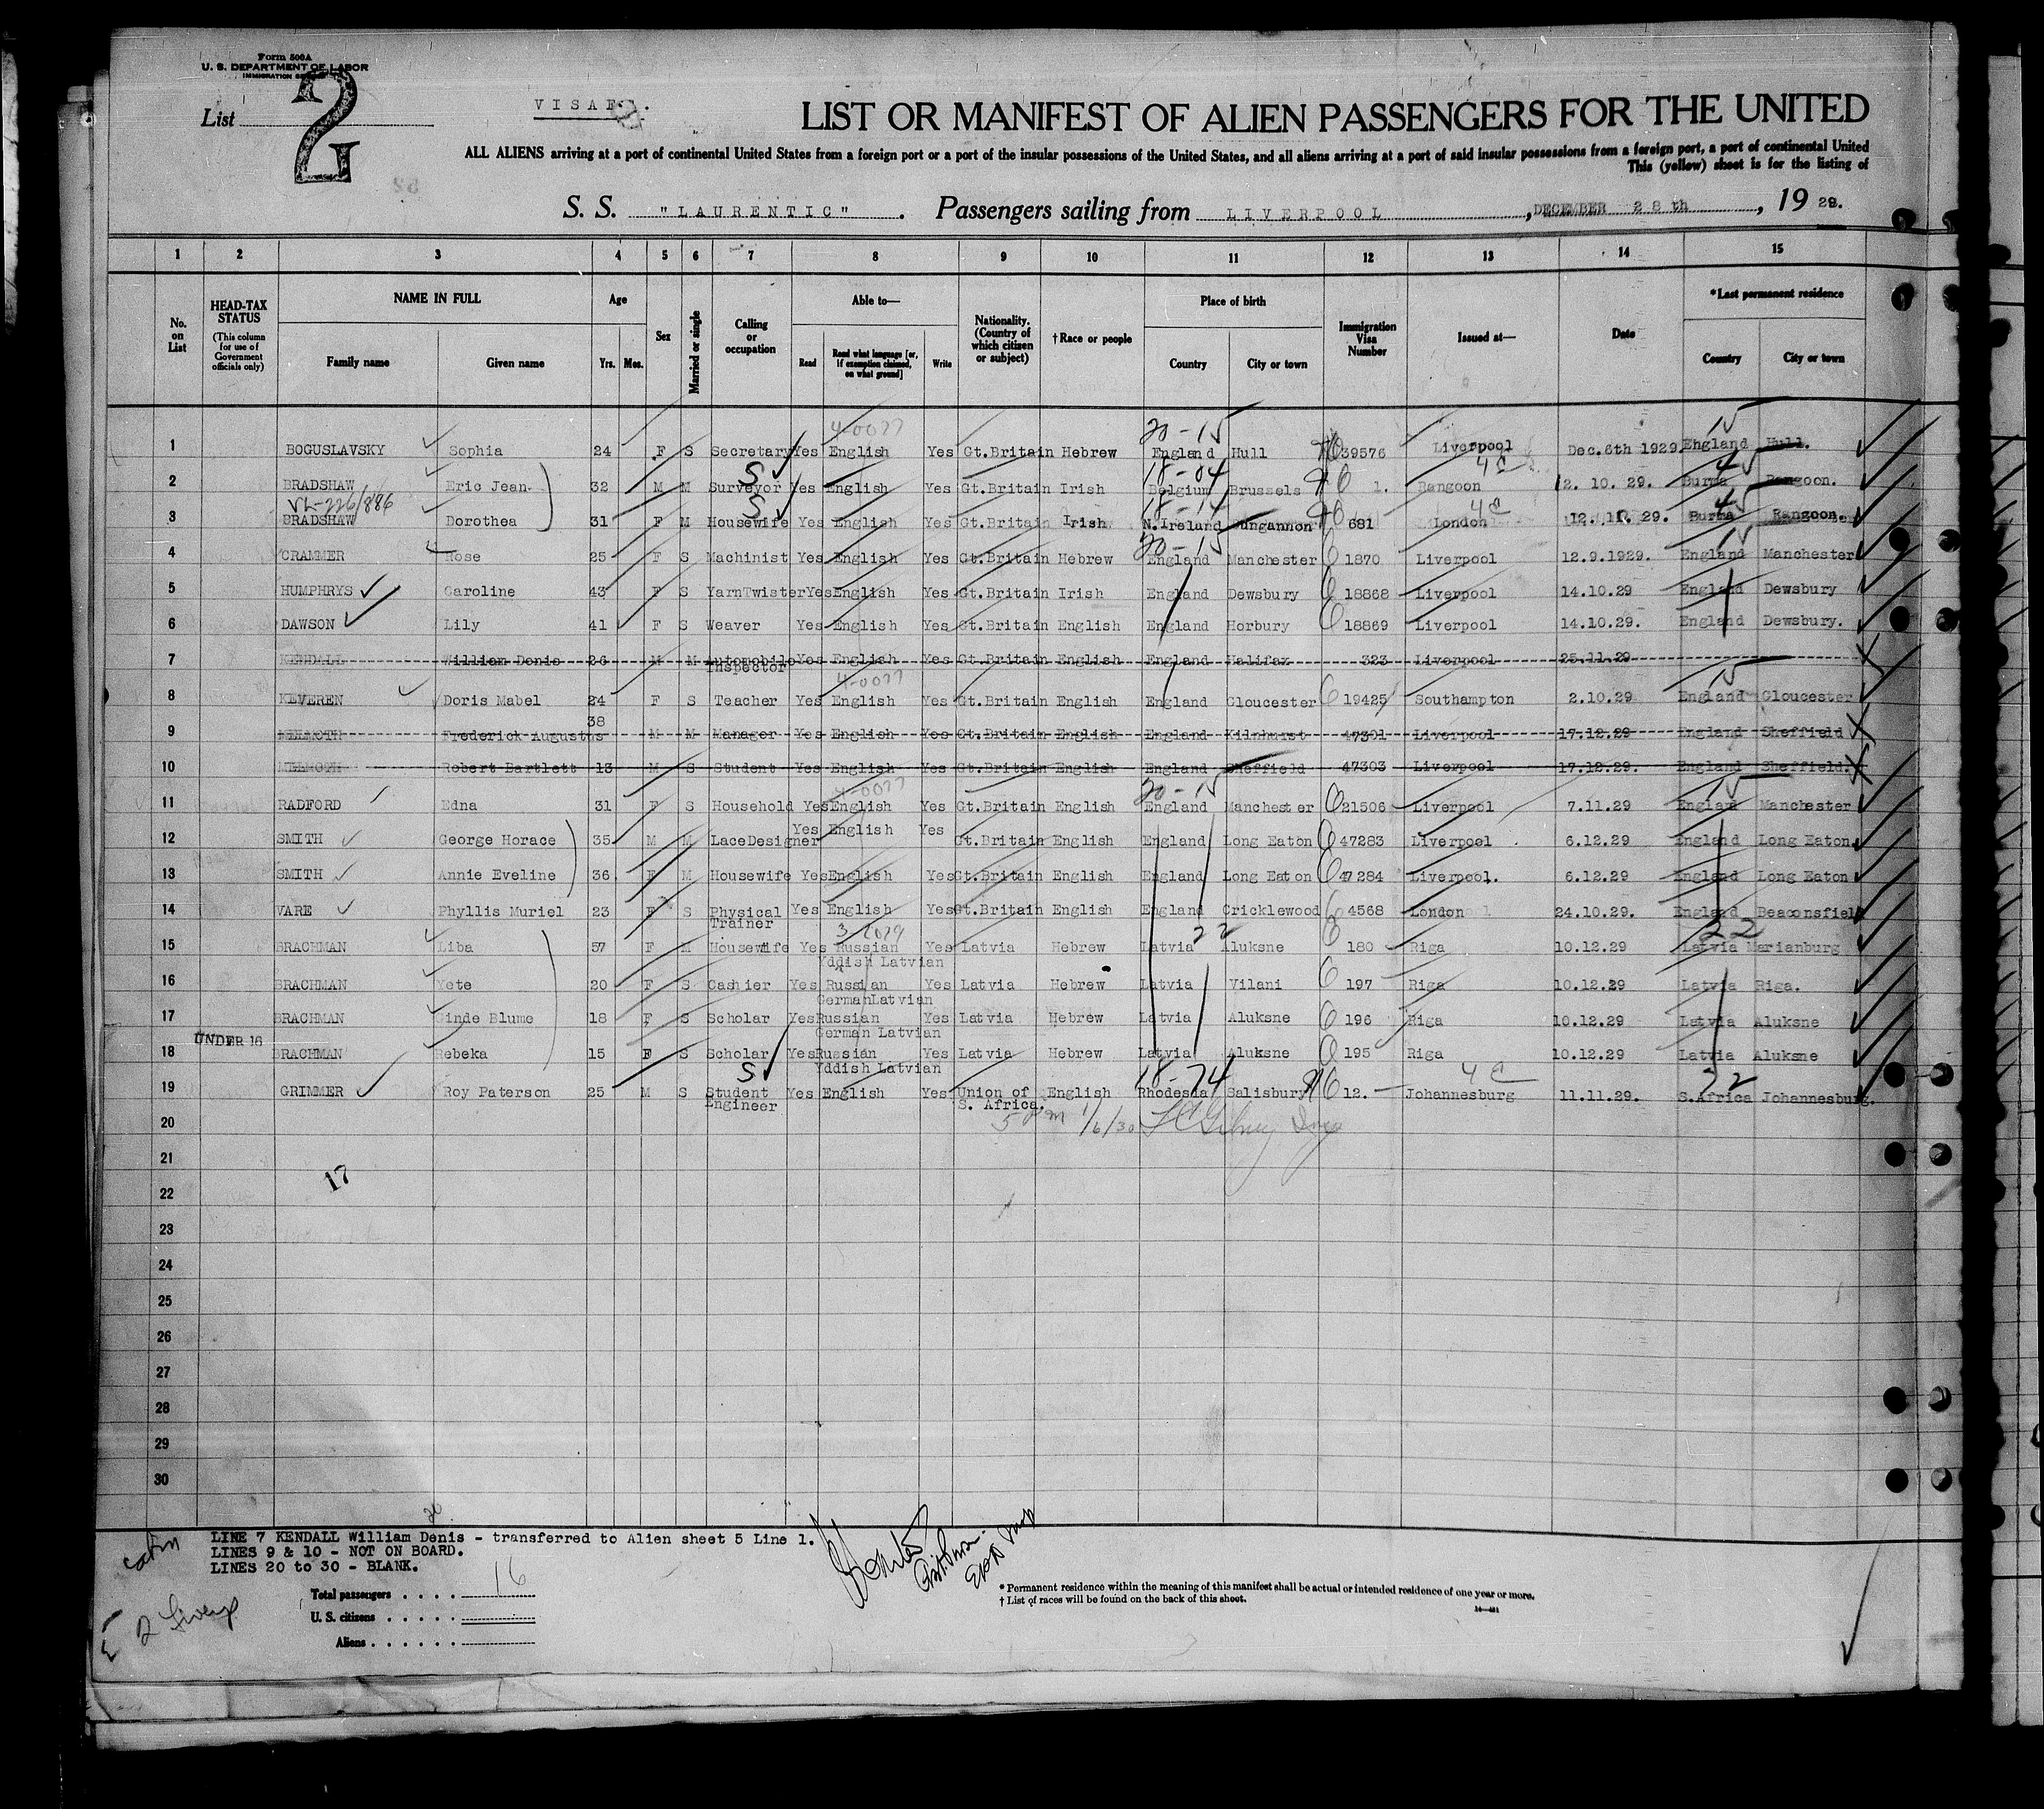 Form 500A
U. S. DEPARTMENT OF LABOR
IMMIGRATION SERVICE
List 2
VISAED.
LIST OR MANIFEST OF ALIEN PASSENGERS FOR THE UNITED
ALL ALIENS arriving at a port of continental United States from a foreign port or a port of the insular possessions of the United States, and all aliens arriving at a port of said insular possessions from a foreign port, a port of continental United
This (yellow) sheet is for the listing of
S. S. "LAURENTIC". Passengers sailing from LIVERPOOL, DECEMBER 28th, 1929.
1 2 3 4 5 6 7 8 9 10 11 12 13 14 15
No. on List
HEAD-TAX STATUS (This column for use of Government officials only)
NAME IN FULL Family name Given name
Age Yrs. Mos.
Sex
Married or single
Calling or occupation
Able to— Read Read what language [or, if exemption claimed, on what ground] Write
Nationality. (Country of which citizen or subject)
†Race or people
Place of birth Country City or town
Immigration Visa Number
Issued at—
Date
*Last permanent residence Country City or town
4-0077 20-15 15
1 BOGUSLAVSKY Sophia 24 F S Secretary Yes English Yes Gt.Britain Hebrew England Hull 39576 Liverpool Dec.6th 1929 England Hull.
S 18-04 4c
2 BRADSHAW Eric Jean 32 M M Surveyor Yes English Yes Gt.Britain Irish Belgium Brussels 1. Rangoon 12. 10. 29. Burma Rangoon.
VL-226/886 S 18-14 4c
3 BRADSHAW Dorothea 31 F M Housewife Yes English Yes Gt.Britain Irish N.Ireland ungannon 681 London 12. 11. 29. Burma Rangoon.
20-15 15
4 CRAMMER Rose 25 F S Machinist Yes English Yes Gt.Britain Hebrew England Manchester 1870 Liverpool 12.9.1929. England Manchester
5 HUMPHRYS Caroline 43 F S YarnTwister Yes English Yes Gt.Britain Irish England Dewsbury 18868 Liverpool 14.10.29 England Dewsbury
6 DAWSON Lily 41 F S Weaver Yes English Yes Gt.Britain English England Horbury 18869 Liverpool 14.10.29. England Dewsbury.
7 KENDALL William Denis 26 M M Automobile Yes English Yes Gt.Britain English England Halifax 323 Liverpool 25.11.29
Inspector
4-0077 15
8 KEVEREN Doris Mabel 24 F S Teacher Yes English Yes Gt.Britain English England Gloucester 19425 Southampton 2.10.29 England Gloucester
38
9 MELMOTH Frederick Augustus M M Manager Yes English Yes Gt.Britain English England Kilnhurst 47301 Liverpool 17.12.29 England Sheffield
10 MELMOTH Robert Bartlett 13 M S Student Yes English Yes Gt.Britain English England Sheffield 47303 Liverpool 17.12.29. England Sheffield.
4-0077 20-15 15
11 RADFORD Edna 31 F S Household Yes English Yes Gt.Britain English England Manchester 21506 Liverpool 7.11.29 England Manchester
12 SMITH George Horace 35 M M LaceDesigner Yes English Yes Gt.Britain English England Long Eaton 47283 Liverpool 6.12.29 England Long Eaton.
13 SMITH Annie Eveline 36 F M Housewife Yes English Yes Gt.Britain English England Long Eaton 47284 Liverpool. 6.12.29 England Long Eaton
14 VARE Phyllis Muriel 23 F S Physical Yes English Yes Gt.Britain English England Cricklewood 4568 London 24.10.29. England Beaconsfield
Trainer
22 22
15 BRACHMAN Liba 57 F M Housewife Yes Russian Yes Latvia Hebrew Latvia Aluksne 180 Riga 10.12.29 Latvia Marianburg
Yddish Latvian
16 BRACHMAN Yete 20 F S Cashier Yes Russian Yes Latvia Hebrew Latvia Vilani 197 Riga 10.12.29 Latvia Riga.
GermanLatvian
17 BRACHMAN Ginde Blume 18 F S Scholar Yes Russian Yes Latvia Hebrew Latvia Aluksne 196 Riga 10.12.29 Latvia Aluksne
German Latvian
UNDER 16
18 BRACHMAN Rebeka 15 F S Scholar Yes Russian Yes Latvia Hebrew Latvia Aluksne 195 Riga 10.12.29 Latvia Aluksne
Yddish Latvian
S 18-74 4c 22
19 GRIMMER Roy Paterson 25 M S Student Yes English Yes Union of English Rhodesia Salisbury 12. Johannesburg 11.11.29. S.Africa Johannesburg.
Engineer S. Africa.
1/6/30
20
21
17
22
23
24
25
26
27
28
29
30
LINE 7 KENDALL William Denis - transferred to Alien sheet 5 Line 1.
LINES 9 & 10 - NOT ON BOARD.
LINES 20 to 30 - BLANK.
Cabin
Total passengers . . . . 16
U. S. citizens . . . . .
Aliens . . . . . .
*Permanent residence within the meaning of this manifest shall be actual or intended residence of one year or more.
†List of races will be found on the back of this sheet.